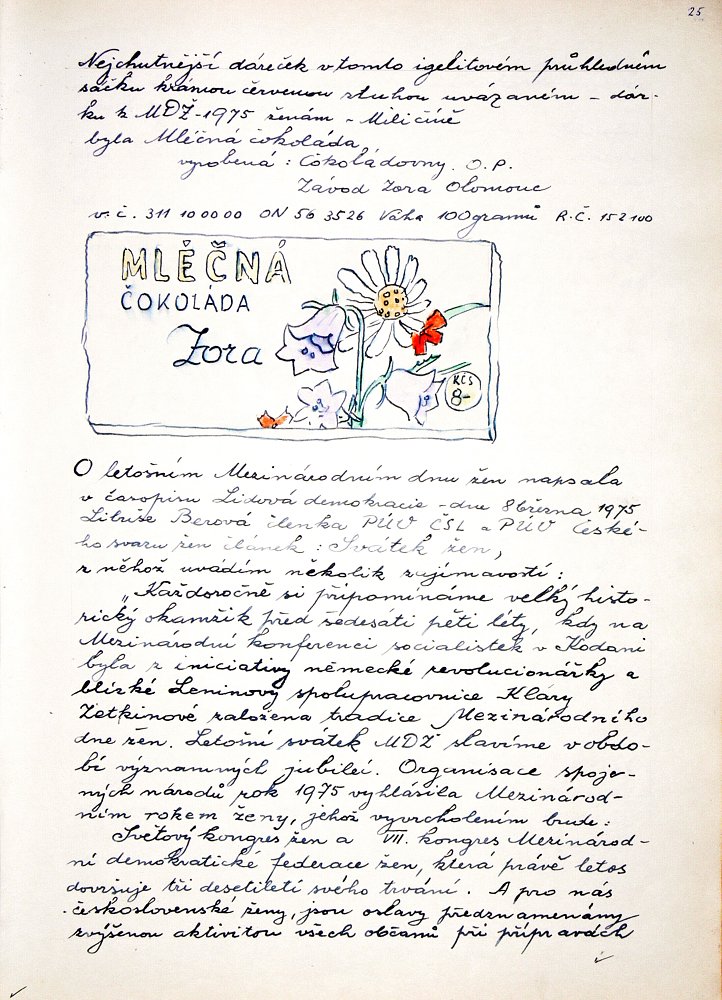 25
Nejchutnější dáreček v tomto igelitovém průhledném
sáčku krásnou červenou stuhou uvázaném - dár-
ku k MDŽ-1975 ženám - Miličíně
byla Mléčná čokoláda,
vyrobená: Čokoládovny. O.P.
Závod Zora Olomouc
v. č. 311 100000 ON 56 3526 Váha 100gramů R.Č. 152100
MLÉČNÁ
ČOKOLÁDA
Zora
KČS
8-
O letošním Mezinárodním dnu žen napsala
v časopisu Lidová demokracie - dne 8března 1975
Libuše Berová členka PÚV ČSL a PÚV České-
ho svazu žen článek: Svátek žen,
z něhož uvádím několik zajímavostí:
„Každoročně si připomínáme velký histo-
rický okamžik před šedesáti pěti léty, kdy na
Mezinárodní konferenci socialistek v Kodani
byla z iniciativy německé revolucionářky a
blízké Leninovy spolupracovnice Kláry
Zetkinové založena tradice Mezinárodního
dne žen. Letošní svátek MDŽ slavíme v obdo-
bí významných jubileí. Organisace spoje-
ných národů rok 1975 vyhlásila Mezinárod-
ním rokem ženy, jehož vyvrcholením bude:
Světový kongres žen a VII. kongres Mezinárod-
ní demokratické federace žen, která právě letos
dovršuje tři desetiletí svého trvání. A pro nás
československé ženy, jsou oslavy předznamenány
zvýšenou aktivitou všech občanů při přípravách